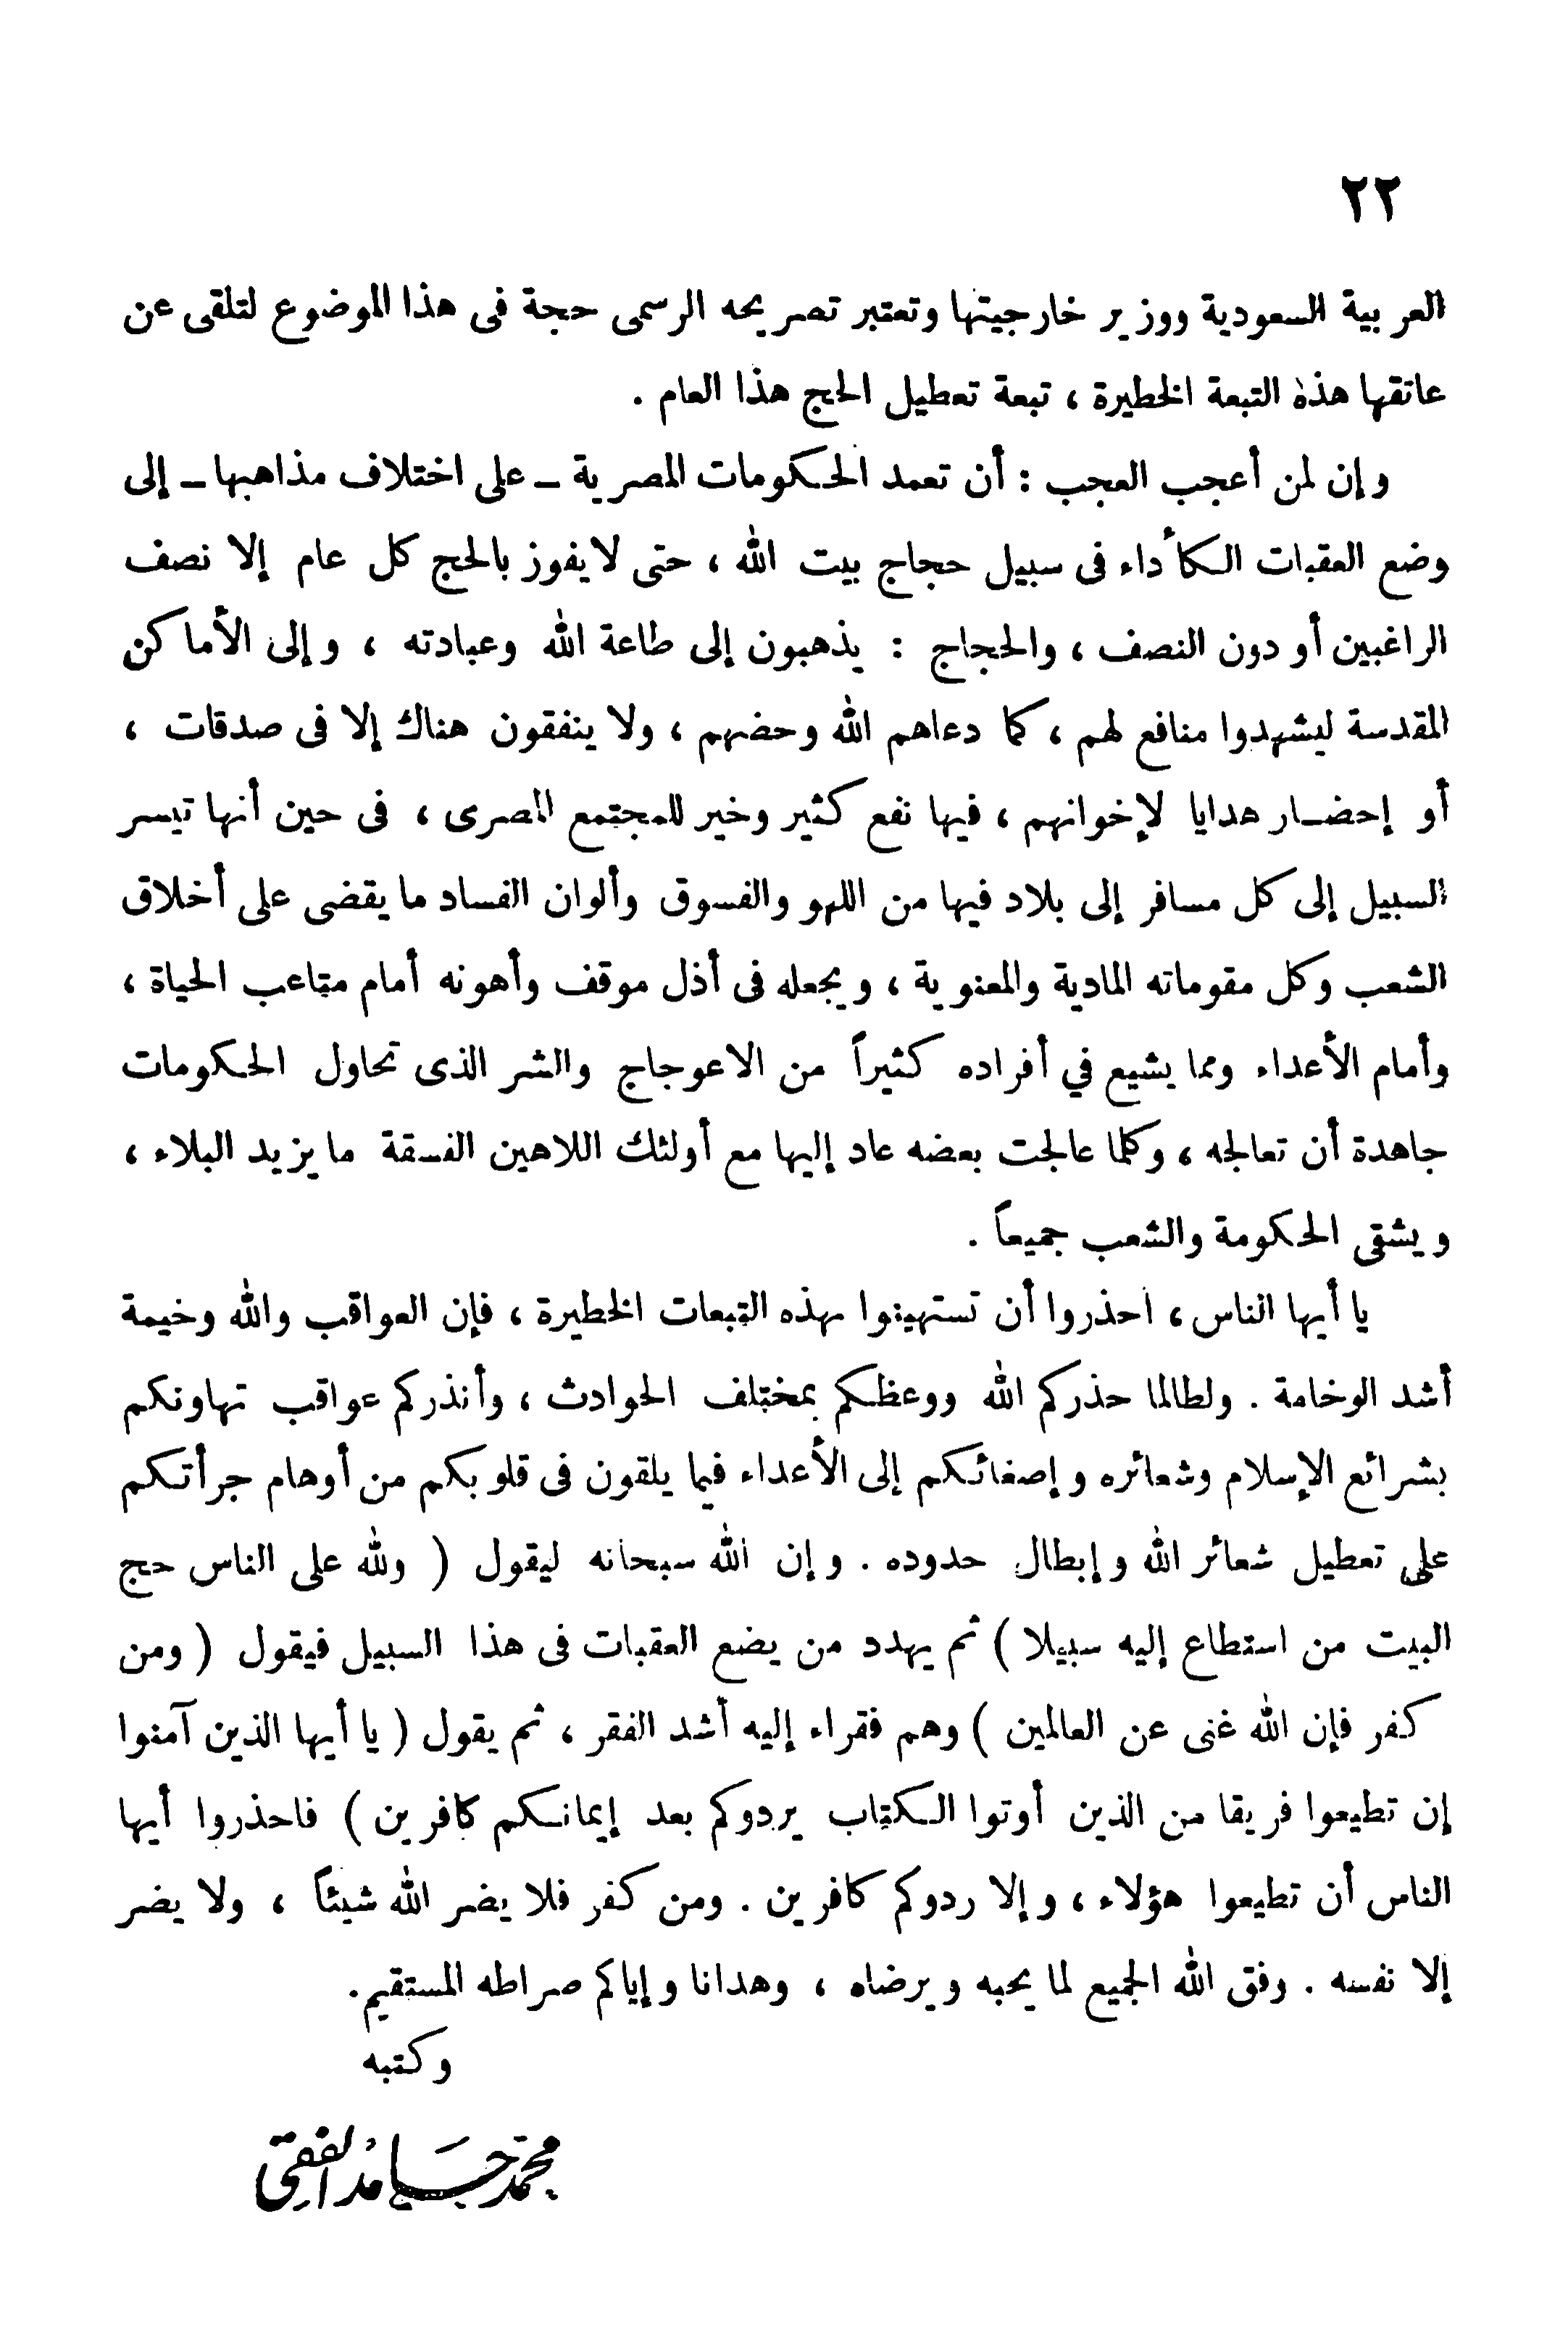 ٢٢
العربية السعودية ووزير خارجيتها وتعتبر تصريحه الرسمى حجة فى هذا الموضوع لتلقى عن
عاتقها هذه التبعة الخطيرة ، تبعة تعطيل الحج هذا العام .
وإن لمن أعجب العجب : أن تعمد الحكومات المصرية ـ على اختلاف مذاهبها ـ إلى
وضع العقبات الكأداء فى سبيل حجاج بيت الله ، حتى لا يفوز بالحج كل عام إلا نصف
الراغبين أو دون النصف ، والحجاج : يذهبون إلى طاعة الله وعبادته ، وإلى الأماكن
المقدسة ليشهدوا منافع لهم ، كما دعاهم الله وحضهم ، ولا ينفقون هناك إلا فى صدقات ،
أو إحضار هدايا لإخوانهم ، فيها نفع كثير وخير للمجتمع المصرى ، فى حين أنها تيسر
السبيل إلى كل مسافر إلى بلاد فيها من اللهو والفسوق وألوان الفساد ما يقضى على أخلاق
الشعب وكل مقوماته المادية والمعنوية ، ويجعله فى أذل موقف وأهونه أمام متاعب الحياة ،
وأمام الأعداء ومما يشيع في أفراده كثيراً من الاعوجاج والشر الذى تحاول الحكومات
جاهدة أن تعالجه ، وكلما عالجت بعضه عاد إليها مع أولئك اللاهين الفسقة ما يزيد البلاء ،
ويشقى الحكومة والشعب جميعاً .
يا أيها الناس ، احذروا أن تستهينوا بهذه التبعات الخطيرة ، فإن العواقب والله وخيمة
أشد الوخامة . ولطالما حذركم الله ووعظكم بمختلف الحوادث ، وأنذركم عواقب تهاونكم
بشرائع الإسلام وشعائره وإصغائكم إلى الأعداء فيما يلقون فى قلوبكم من أوهام جرأتكم
على تعطيل شعائر الله وإبطال حدوده . وإن الله سبحانه ليقول ( ولله على الناس حج
البيت من استطاع إليه سبيلا ) ثم يهدد من يضع العقبات فى هذا السبيل فيقول ( ومن
كفر فإن الله غنى عن العالمين ) وهم فقراء إليه أشد الفقر ، ثم يقول ( يا أيها الذين آمنوا
إن تطيعوا فريقا من الذين أوتوا الكتاب يردوكم بعد إيمانكم كافرين ) فاحذروا أيها
الناس أن تطيعوا هؤلاء ، وإلا ردوكم كافرين . ومن كفر فلا يضر الله شيئاً ، ولا يضر
إلا نفسه . وفق الله الجميع لما يحبه ويرضاه ، وهدانا وإياكم صراطه المستقيم .
وكتبه
محمد حَامدُ الفقى